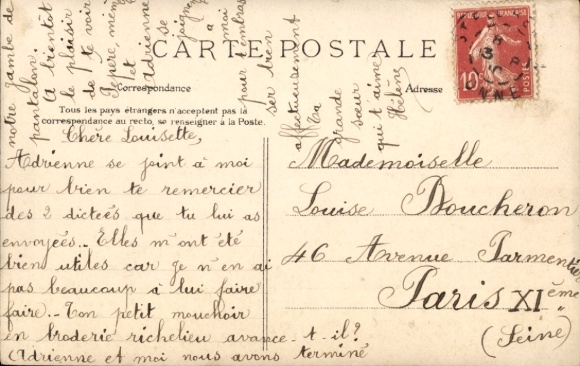 CARTE POSTALE
Correspondance
Adresse
Tous les pays étrangers n'acceptent pas la
correspondance au recto, se renseigner à la Poste.
Chère Louisette,
Adrienne se joint à moi
pour bien te remercier
des 2 dictées que tu lui as
envoyées... Elles m'ont été
bien utiles car je n'en ai
pas beaucoup à lui faire
faire... Ton petit mouchoir
en broderie richelieu avance-t-il?
(Adrienne et moi nous avons terminé
notre jambe de
pantalon.
A bientôt
le plaisir
de te voir
Pépère, mémé
et
Adrienne
se
joignent
à
moi
pour t'embras
ser bien
affectueusement
Ta
grande
sœur
qui t'aime
Hélène
Mademoiselle
Louise Boucheron
46 Avenue Parmentier
Paris XIème
(Seine)
10